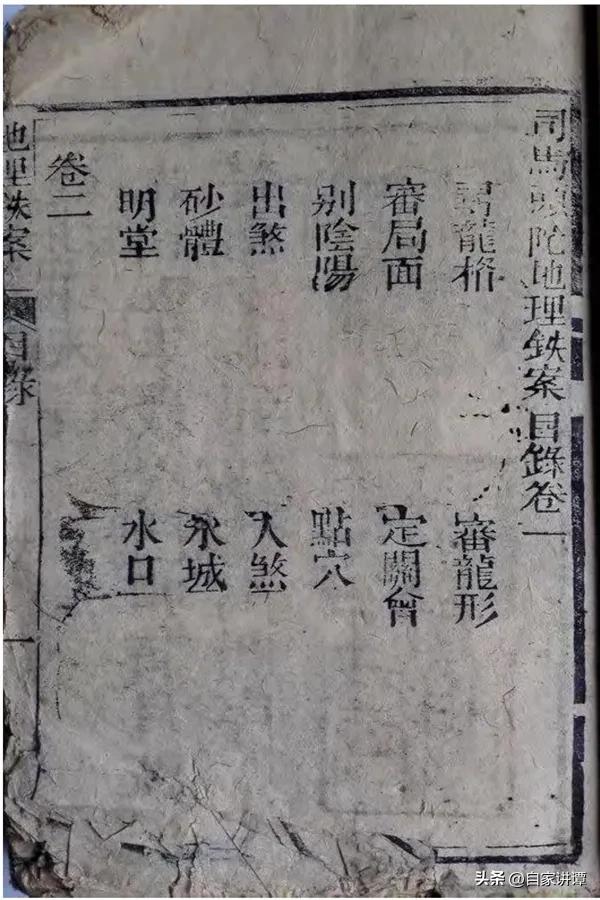 司馬頭陀地理鉄案目錄卷一
尋龍格 審龍形
審局面 定關會
別陰陽 點穴
出煞 入煞
砂體 水城
明堂 水口
卷二
地理鉄案 目錄 一
头条 @自家讲谭